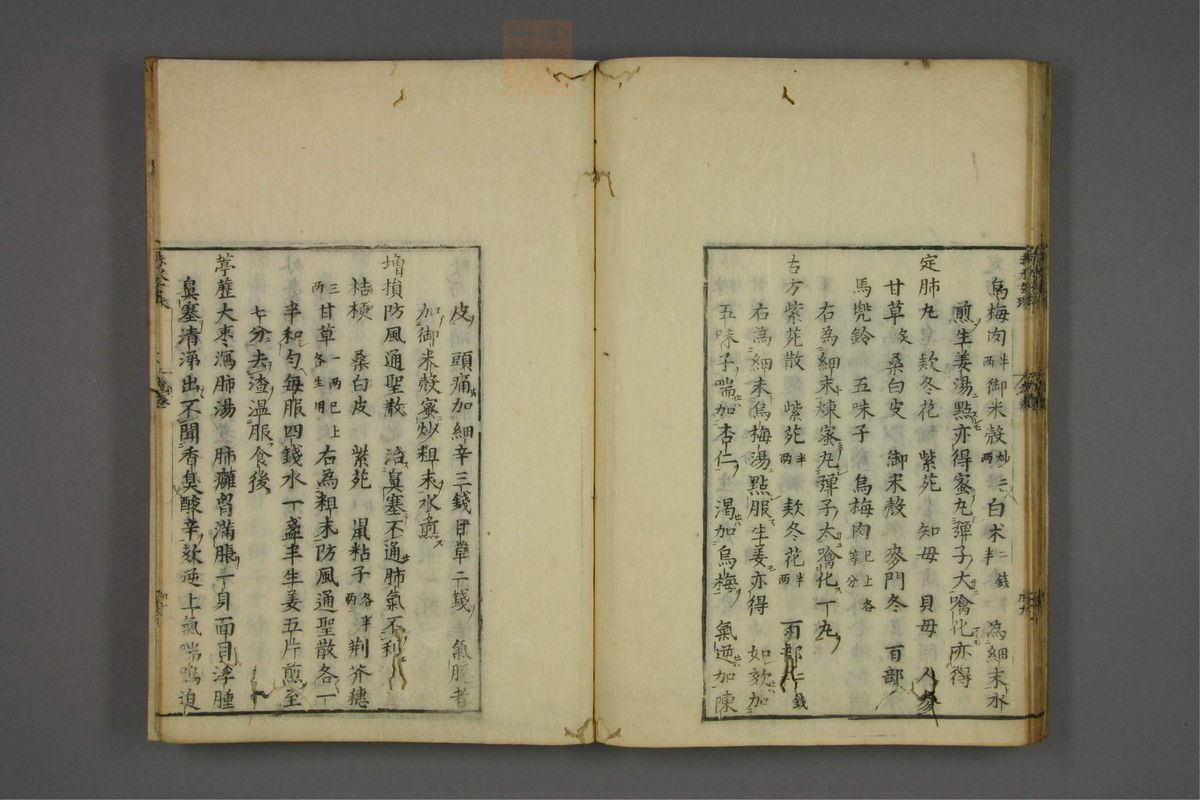 烏梅肉半両御米殻炒二両白朮二錢半為細末水
煎生姜湯點亦得蜜丸彈子大噙化亦得
定肺丸 欵冬花 紫苑 知母 貝母 人參
甘草炙 桑白皮 御米殻 麥門冬 百部
馬兜鈴 五味子 烏梅肉已上各等分
右為細末煉蜜丸彈子大噙化一丸
古方紫苑散 紫苑半両 欵冬花半両 百部二錢
右為細末烏梅湯點服生姜亦得 如欬加
五味子喘加杏仁 渴加烏梅 氣逆加陳
皮 頭痛加細辛三錢甘草二錢 氣脹者
加御米殻蜜炒粗末水煎
增損防風通聖散 治鼻塞不通肺氣不利
桔梗 桑白皮 紫苑 鼠粘子各半両 荆芥穗
三両甘草一両已上各生用右為粗末防風通聖散各一
半和匀每服四錢水一盞半生姜五片煎至
七分去渣溫服食後
葶藶大枣瀉肺湯 肺癰胷滿脹一身面目浮腫
鼻塞清涕出不聞香臭酸辛欬逆上氣喘鳴迫